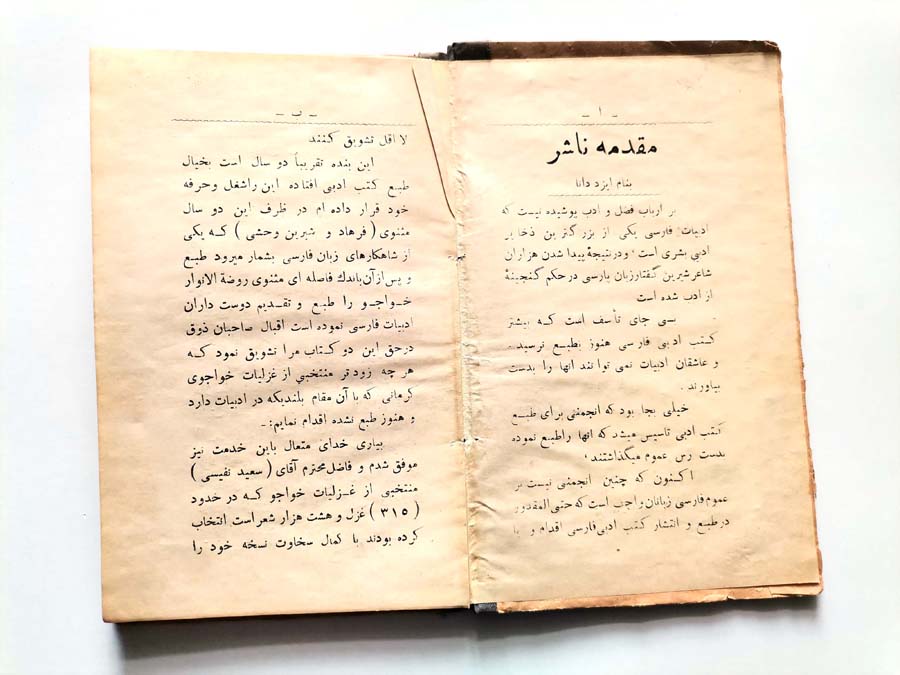 ـ ا ـ
مقدمه ناشر
بنام ایزد دانا
بر ارباب فضل و ادب پوشیده نیست که
ادبیات فارسی یکی از بزرگترین ذخایر
ادبی بشری است ، و در نتیجهٔ پیدا شدن هزاران
شاعر شیرین گفتار زبان پارسی در حکم گنجینهٔ
از ادب شده است
بسی جای تأسف است که بیشتر
کتب ادبی فارسی هنوز بطبع نرسیده
و عاشقان ادبیات نمی توانند آنها را بدست
بیاورند .
خیلی بجا بود که انجمنی برای طبع
کتب ادبی تاسیس میشد که آنها را طبع نموده
بدست رس عموم میگذاشتند ،
اکنون که چنین انجمنی نیست بر
عموم فارسی زبانان واجب است که حتی المقدور
در طبع و انتشار کتب ادبی فارسی اقدام و یا
ـ ب ـ
لا اقل تشویق کنند
این بنده تقریباً دو سال است بخیال
طبع کتب ادبی افتاده این را شغل و حرفه
خود قرار داده ام در ظرف این دو سال
مثنوی ( فرهاد و شیرین وحشی ) که یکی
از شاهکارهای زبان فارسی بشمار میرود طبع
و پس از آن باندك فاصله ای مثنوی روضة الانوار
خواجو را طبع و تقدیم دوست داران
ادبیات فارسی نموده است اقبال صاحبان ذوق
در حق این دو کتاب مرا تشویق نمود که
هر چه زود تر منتخبی از غزلیات خواجوی
کرمانی که با آن مقام بلندیکه در ادبیات دارد
و هنوز طبع نشده اقدام نمایم :ـ
بیاری خدای متعال باین خدمت نیز
موفق شدم و فاضل محترم آقای ( سعید نفیسی )
منتخبی از غزلیات خواجو که در حدود
( ۳۱۵ ) غزل و هشت هزار شعر است انتخاب
کرده بودند با کمال سخاوت نسخه خود را